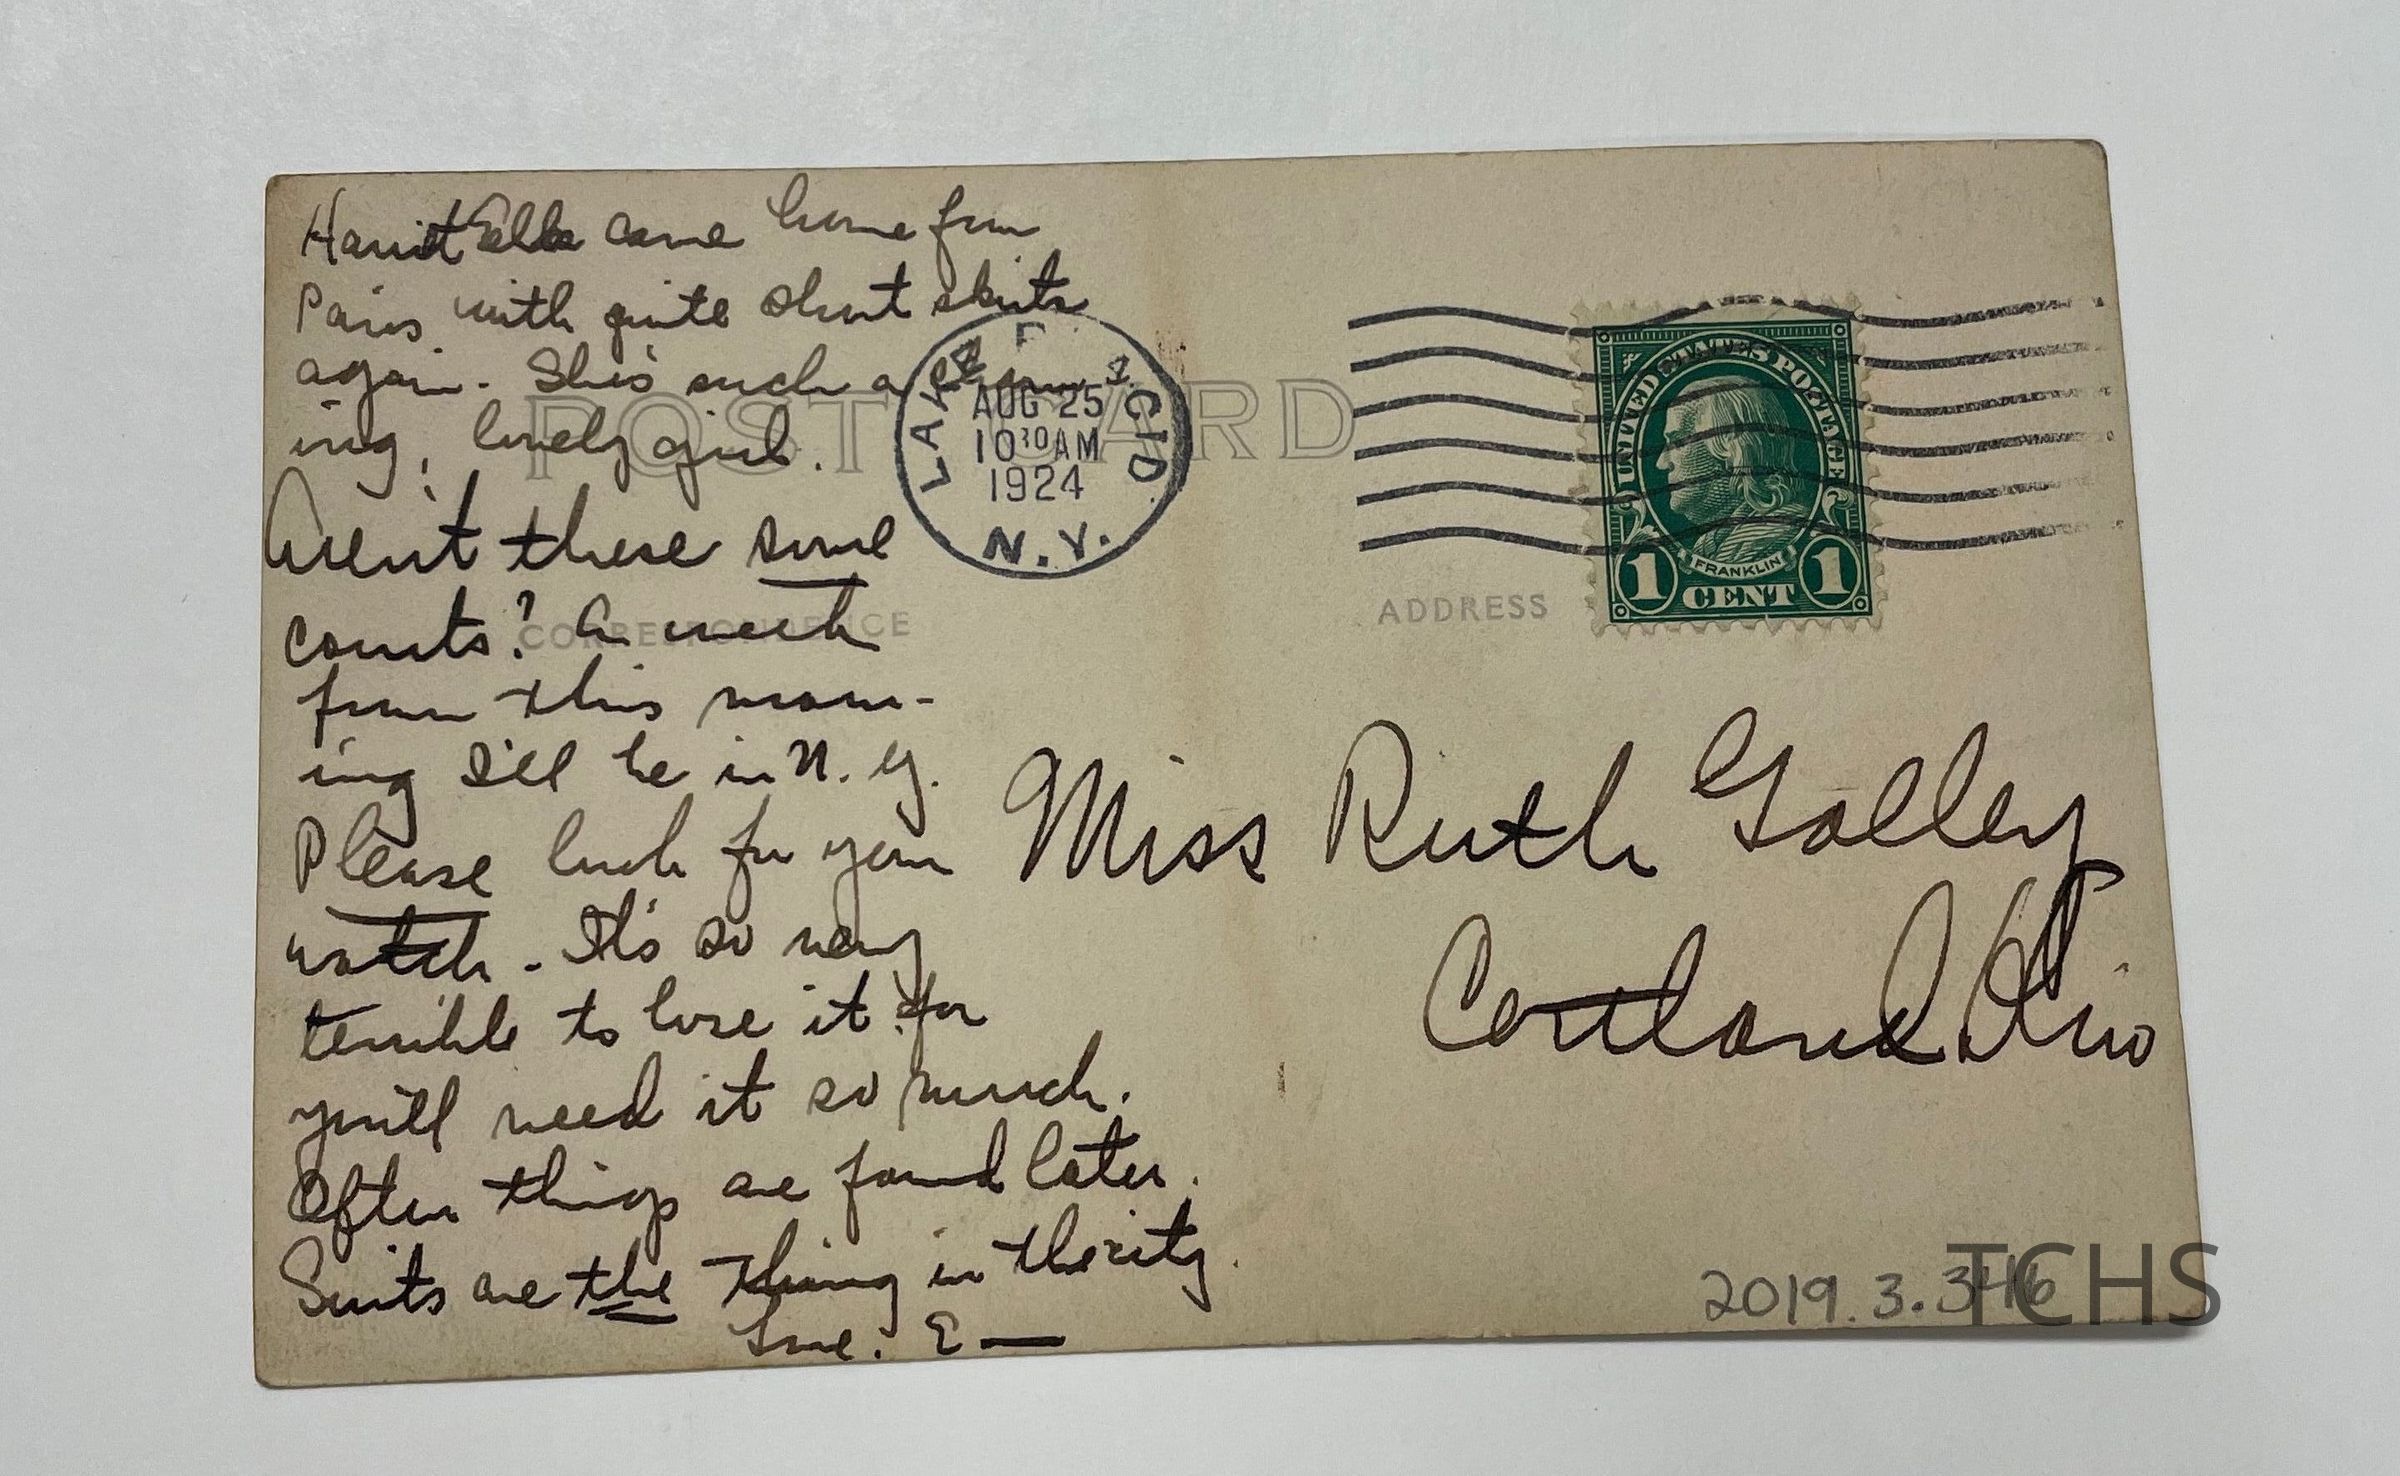 Harriet Ella came home from
Paris with quite short skirts
again. She's such a
ing, lovely girl.
Aren't these some
courts? A week
from this morn-
ing I'll be in N. Y.
Please look for your
watch - It's so very
terrible to lose it for
you'll need it so much.
Often things are found later.
Suits are the thing in the city.
Love. E —
POST CARD
CORRESPONDENCE
LAKE PLACID
AUG 25
10 30 AM
1924
N.Y.
UNITED STATES POSTAGE
FRANKLIN
1 CENT 1
ADDRESS
Miss Ruth Golley
Cortland Ohio
2019.3.346
TCHS